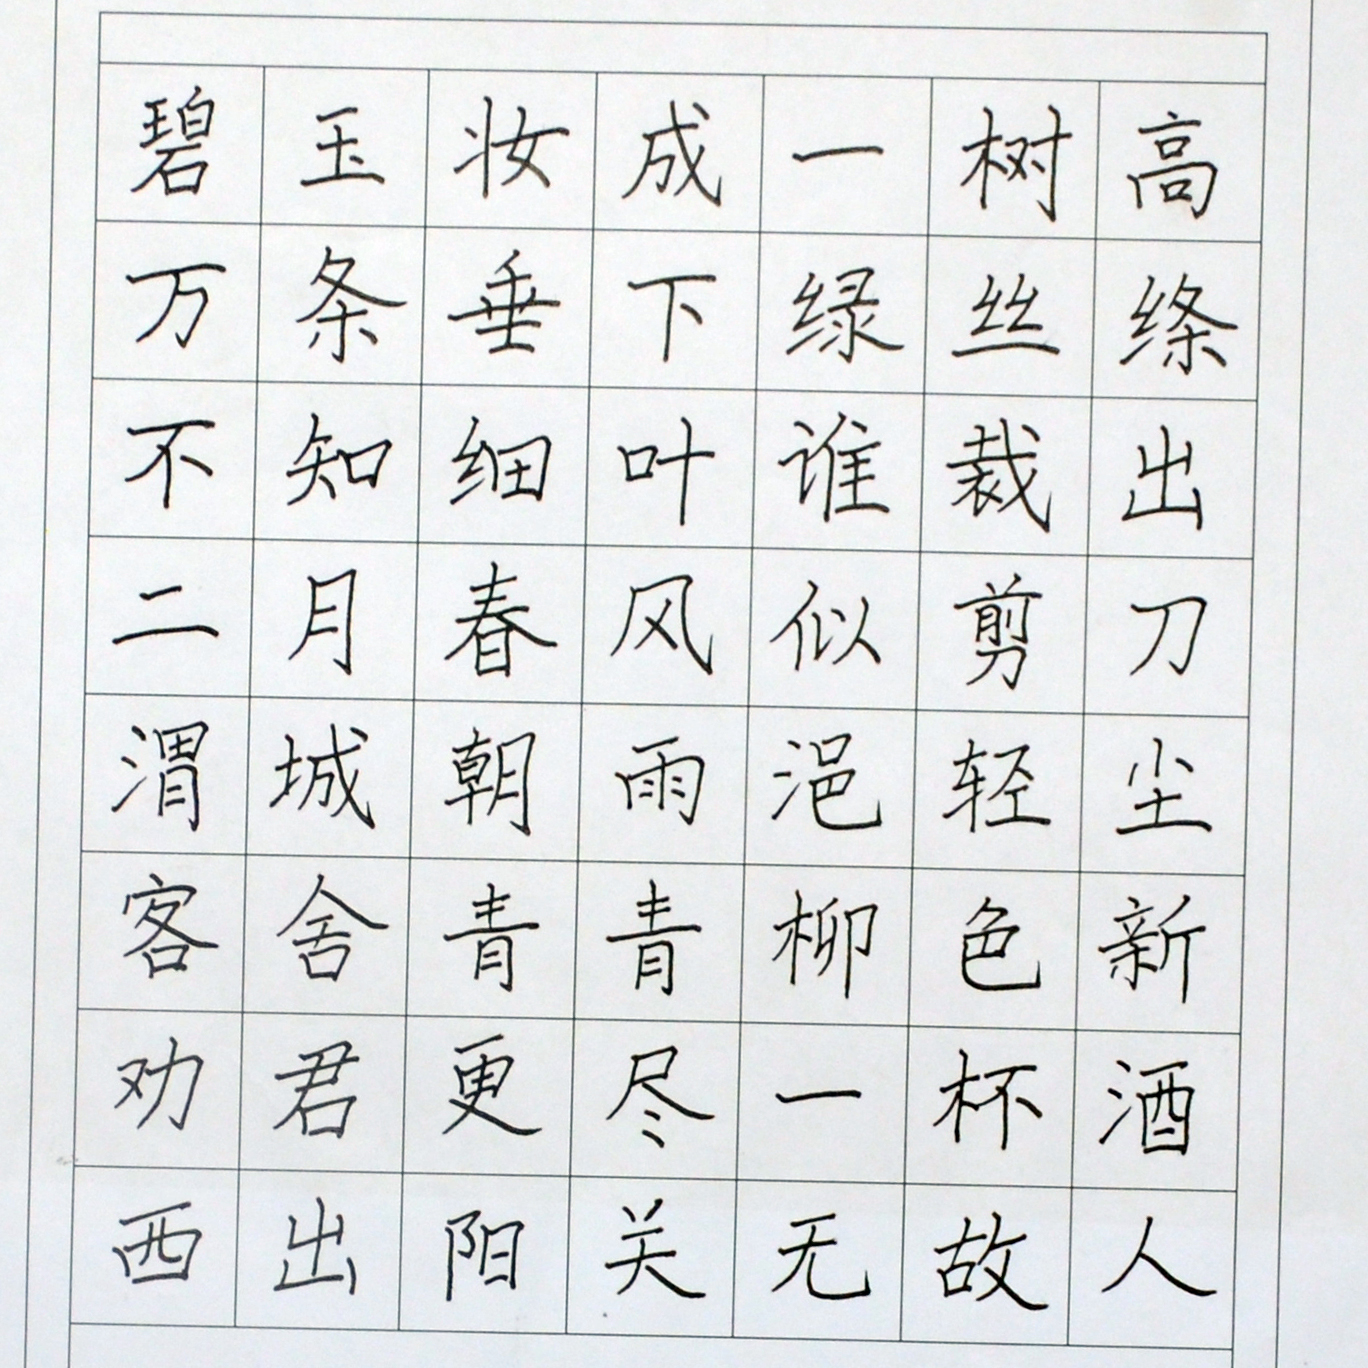 碧玉妆成一树高
万条垂下绿丝绦
不知细叶谁裁出
二月春风似剪刀
渭城朝雨浥轻尘
客舍青青柳色新
劝君更尽一杯酒
西出阳关无故人